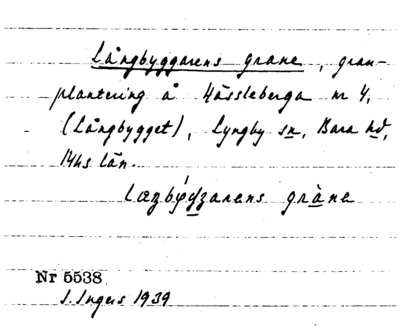 Långbyggarens grane, gran-
plantering å Hässleberga nr 4,
(Långbygget), Lyngby sn, Bara hd,
Mhs län.
lœgbýȝarens gràne
Nr 5538
I. Ingers 1939